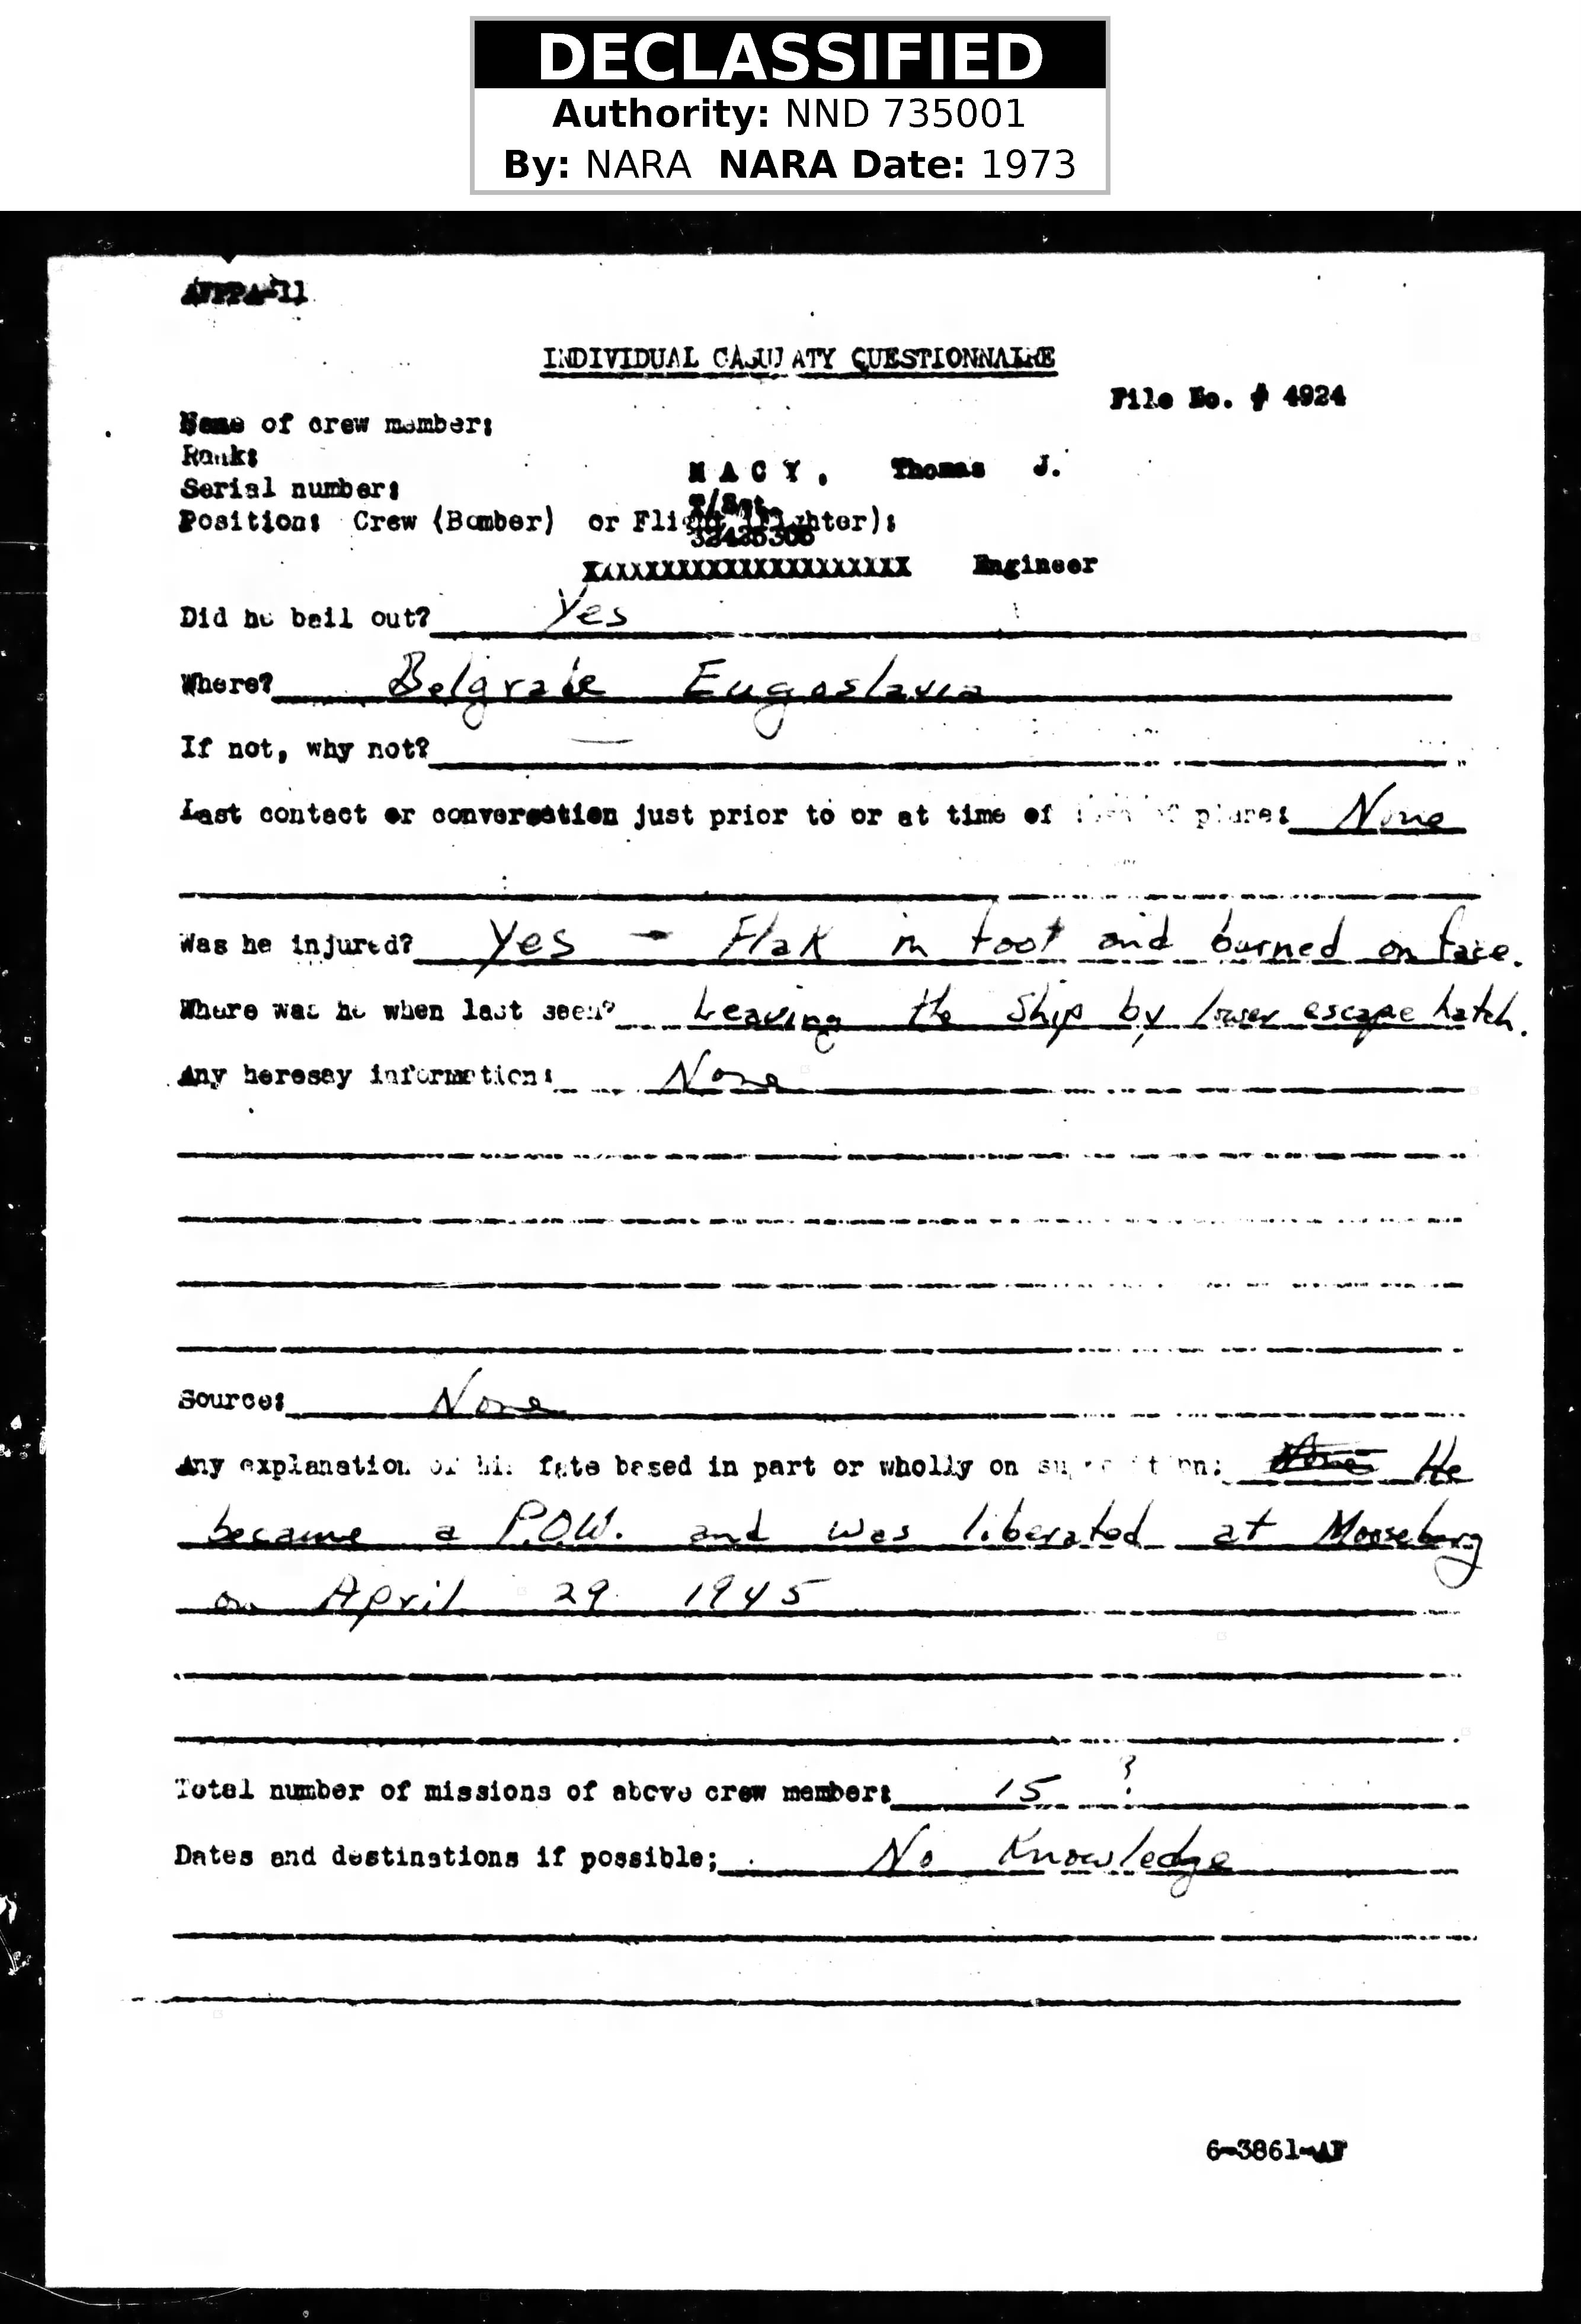 DECLASSIFIED
Authority: NND 735001
By: NARA NARA Date: 1973
AFPPA-11
INDIVIDUAL CASUALTY QUESTIONNAIRE
File No. # 4924
Name of crew member:
Rank:
MACY, Thomas J.
Serial number:
T/Sgt.
Position: Crew (Bomber) or Flight (Fighter):
XXXXXXXXXXXXXXXXXXXXX Engineer
Did he bail out? Yes
Where? Belgrade Eugoslavia
If not, why not? —
Last contact or conversation just prior to or at time of loss of plane: None
Was he injured? Yes - Flak in foot and burned on face.
Where was he when last seen? Leaving the Ship by lower escape hatch.
Any heresay information: None
Source: None
Any explanation of his fate based in part or wholly on supposition: He
became a P.O.W. and was liberated at Mooseburg
on April 29 1945
Total number of missions of above crew member: 15 ?
Dates and destinations if possible; No Knowledge
6-3861-AF